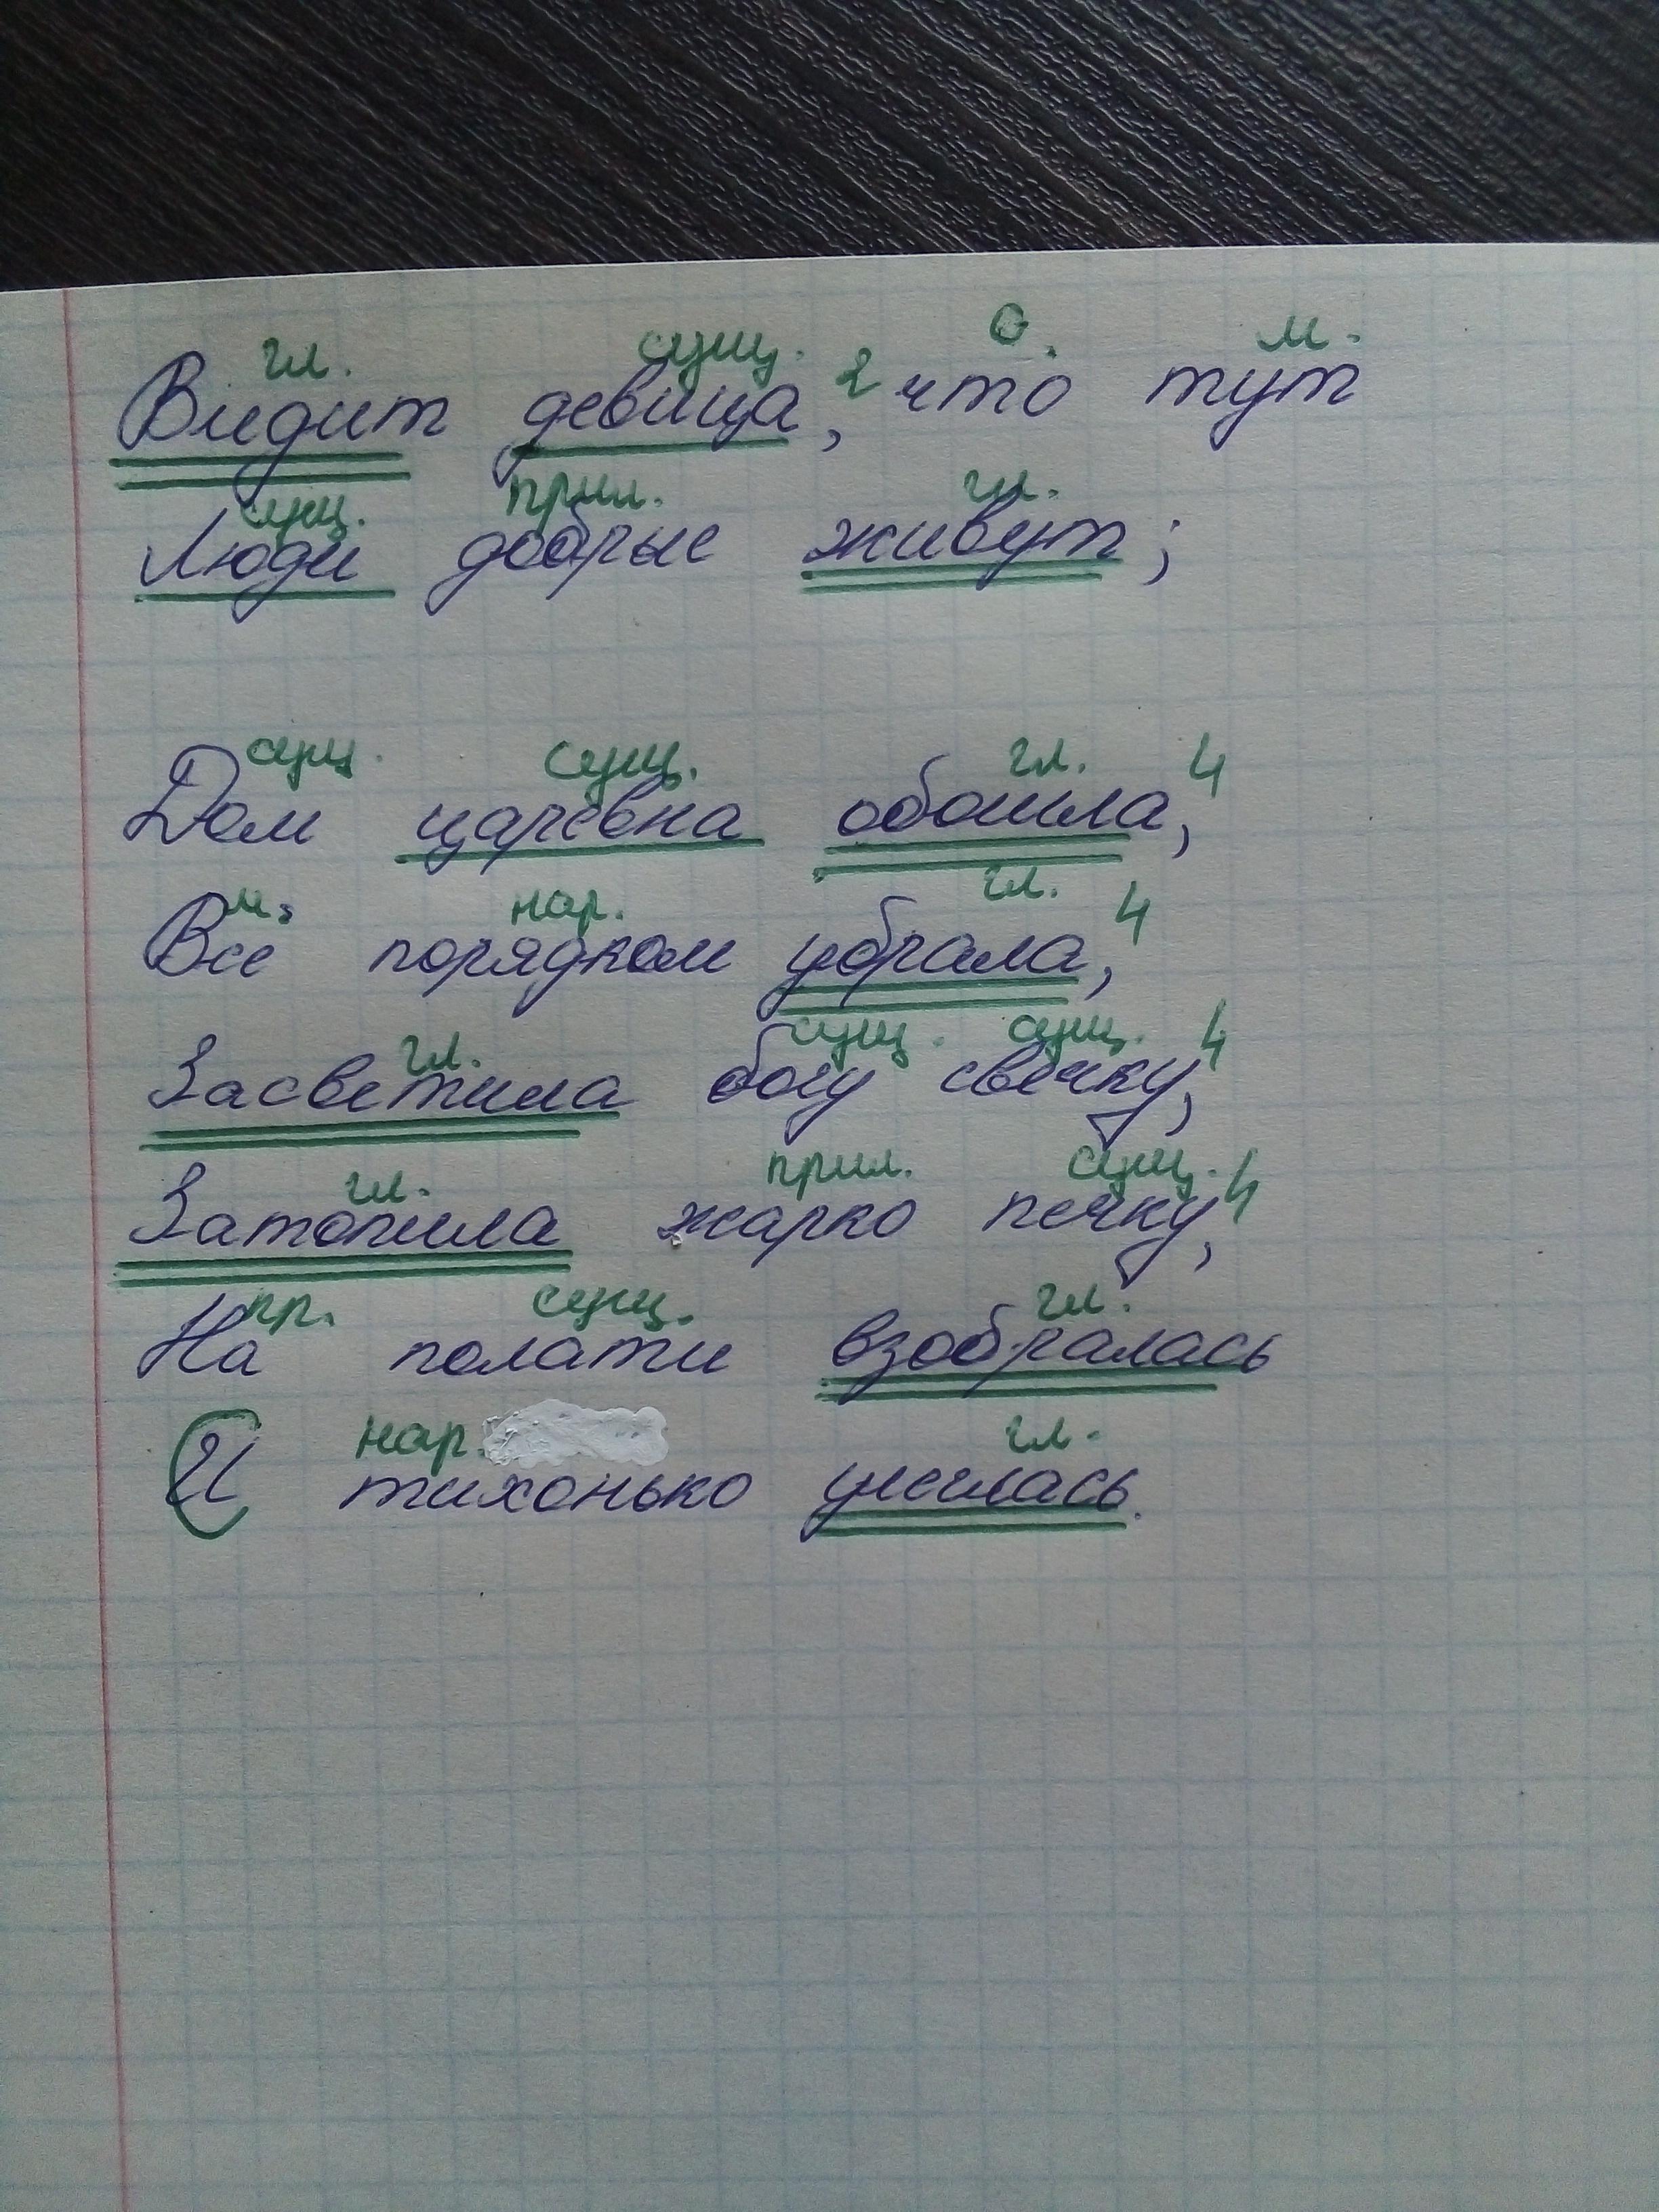 гл. сущ. 2 с. м.
Видит девица, что тут
сущ. прил. гл.
Люди добрые живут;
сущ. сущ. гл. 4
Дом царевна обошла,
м. нар. гл. 4
Все порядком убрала,
гл. сущ. сущ. 4
Засветила богу свечку,
гл. прил. сущ. 4
Затопила жарко печку,
пр. сущ. гл.
На полати взобралась
нар. гл.
И тихонько улеглась.